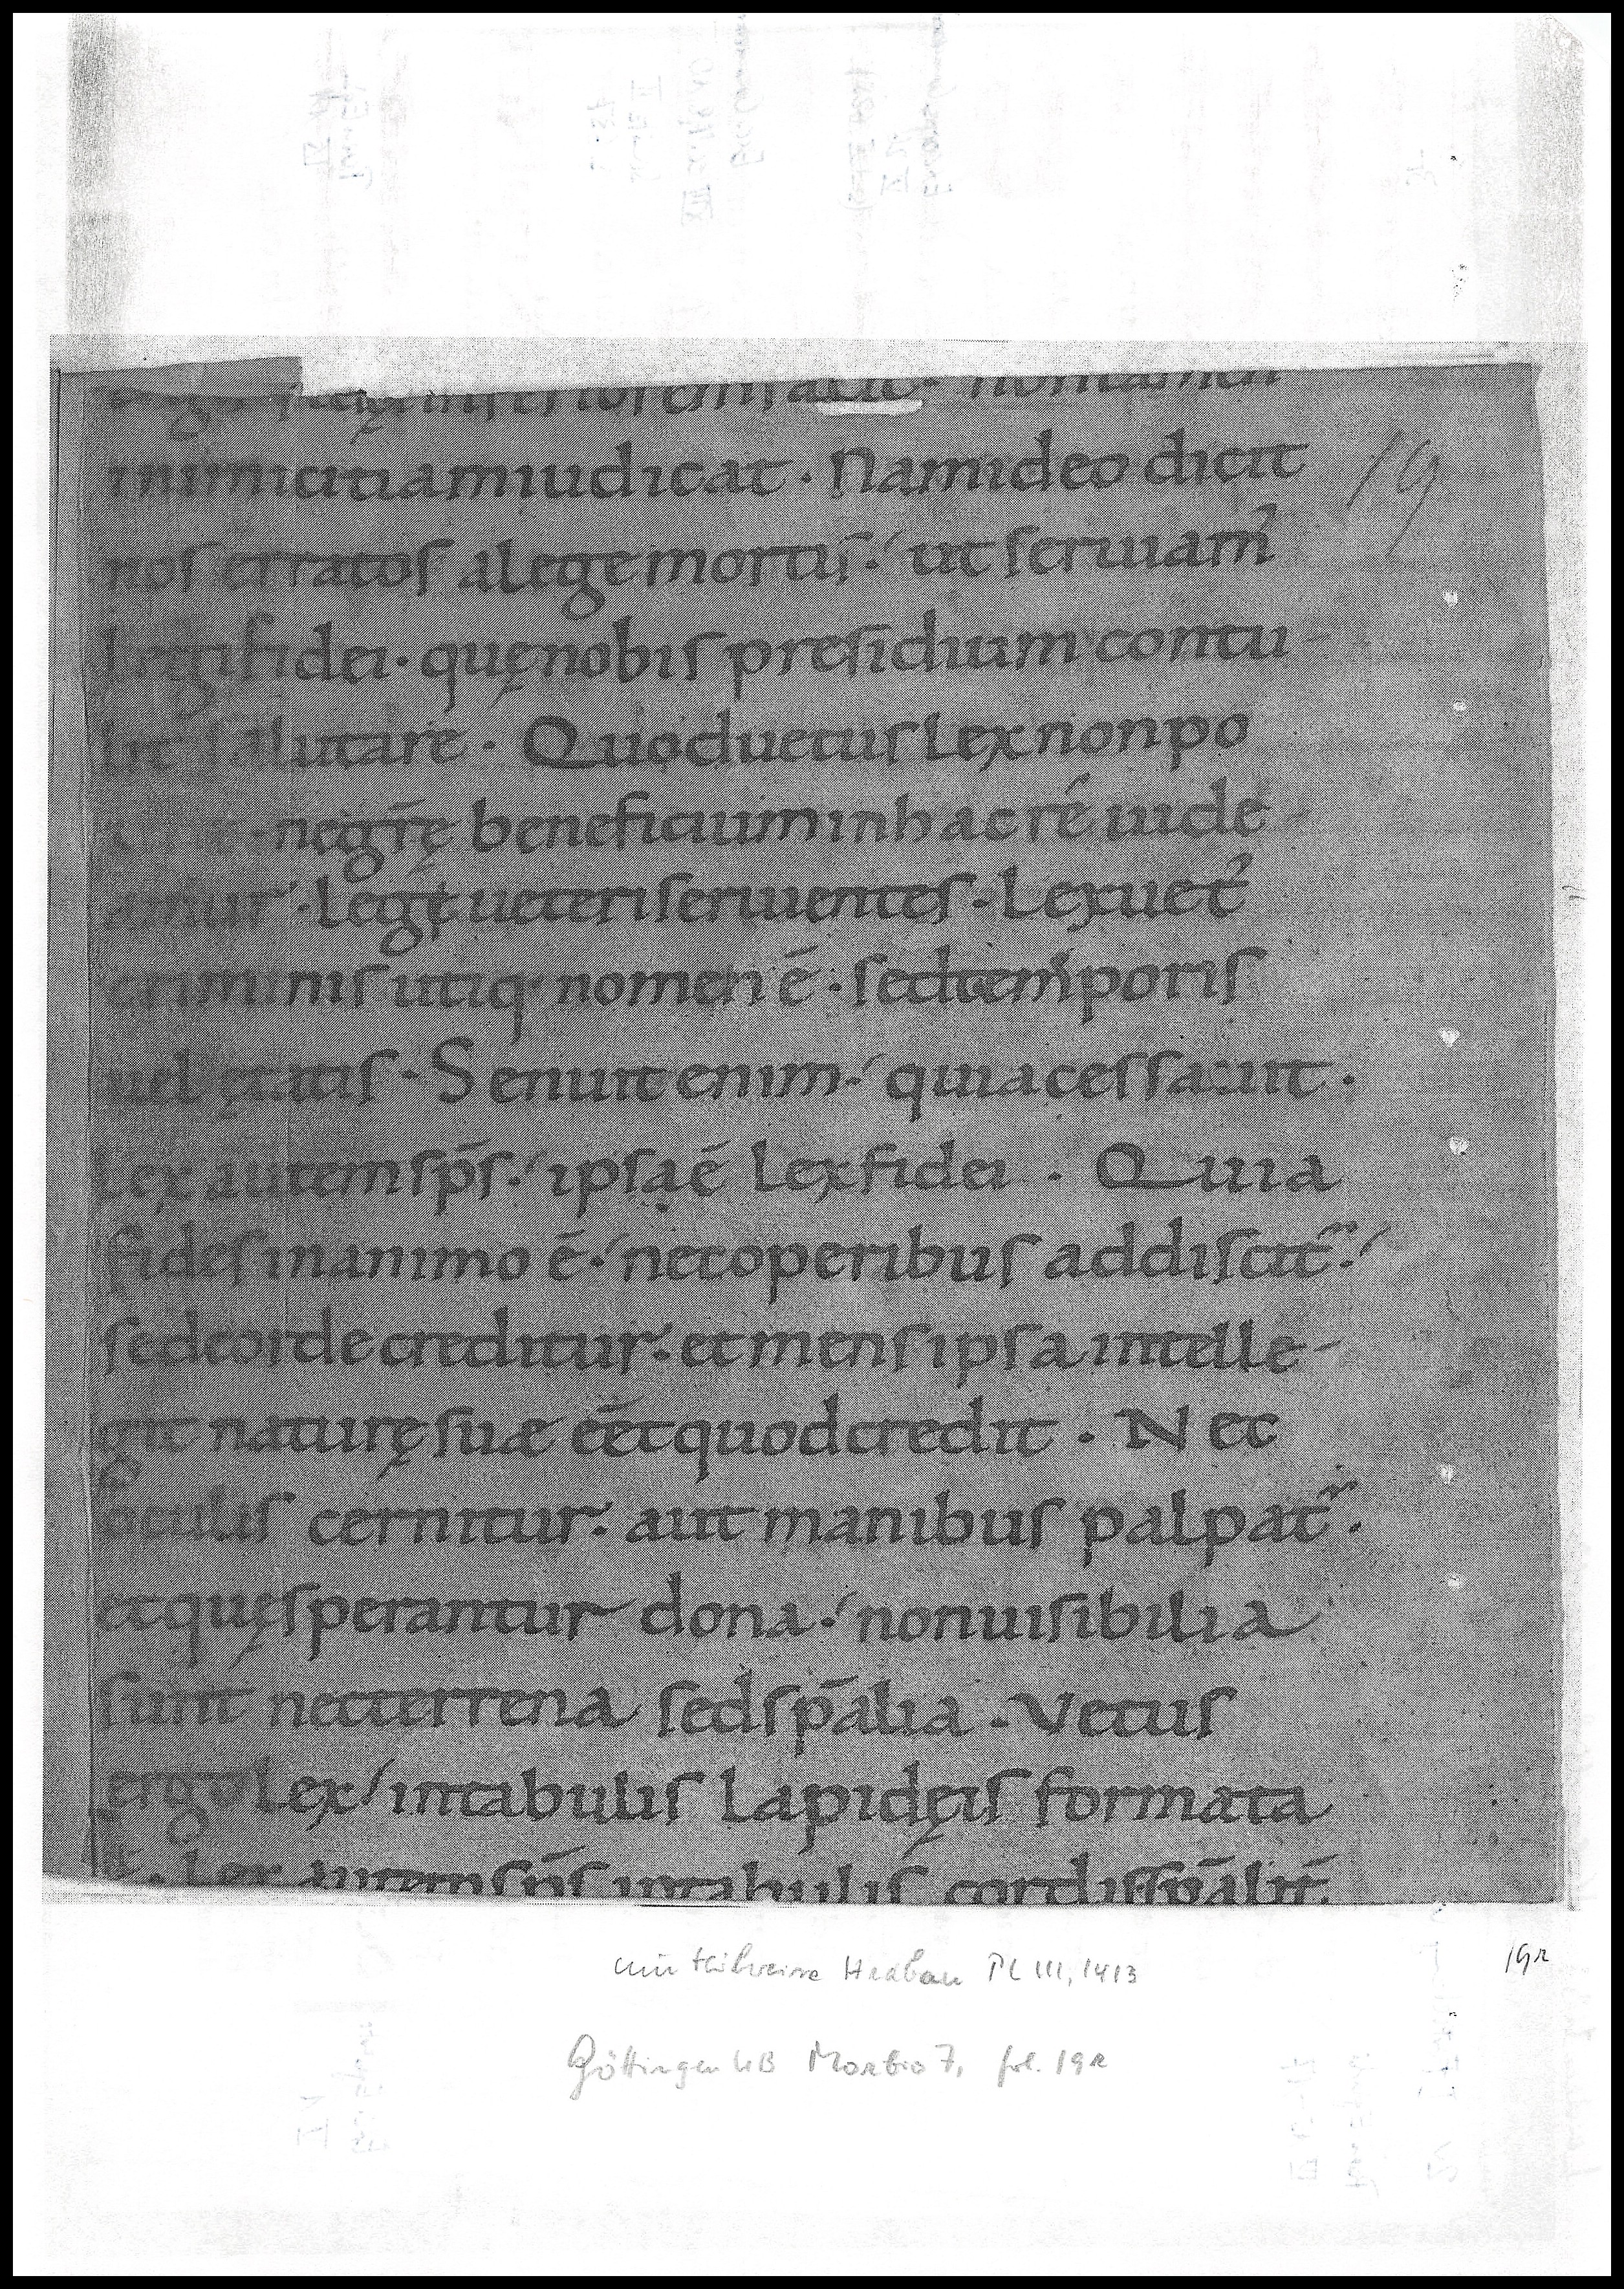 inferiorem facit · non tamen
inimicitiam iudicat · Nam ideo dicit
nos erratos a lege mortis · ut seruiam̃
legi fidei · quę nobis presidium contu-
lit salutare · Quod uetus lex non po
negr̄ę beneficium in hac ré uide-
amur · Legę ueteri seruientes · Lex uet̃
criminis utiq· nomen ē · sed temporis
uel ętatis · Senuit enim · quia cessauit ·
Lex autem sp̄s · ipsa ē lex fidei · Quia
fides in animo ē · nec operibus addiscit᷑ ·
sed corde creditur · et mens ipsa intelle-
git naturę suæ eēt quod credit · Nec
oculis cernitur · aut manibus palpat᷑ ·
et quę sperantur dona · non uisibilia
sunt nec terrena sed sp̄alia · Vetus
ergo lex / in tabulis lapidęis formata
ē · Lex autem sp̄s in tabulis cordis sp̄alit̃
19
Hraban PL 111, 1413
19r
Göttingen UB Morbio 7, fol. 19r